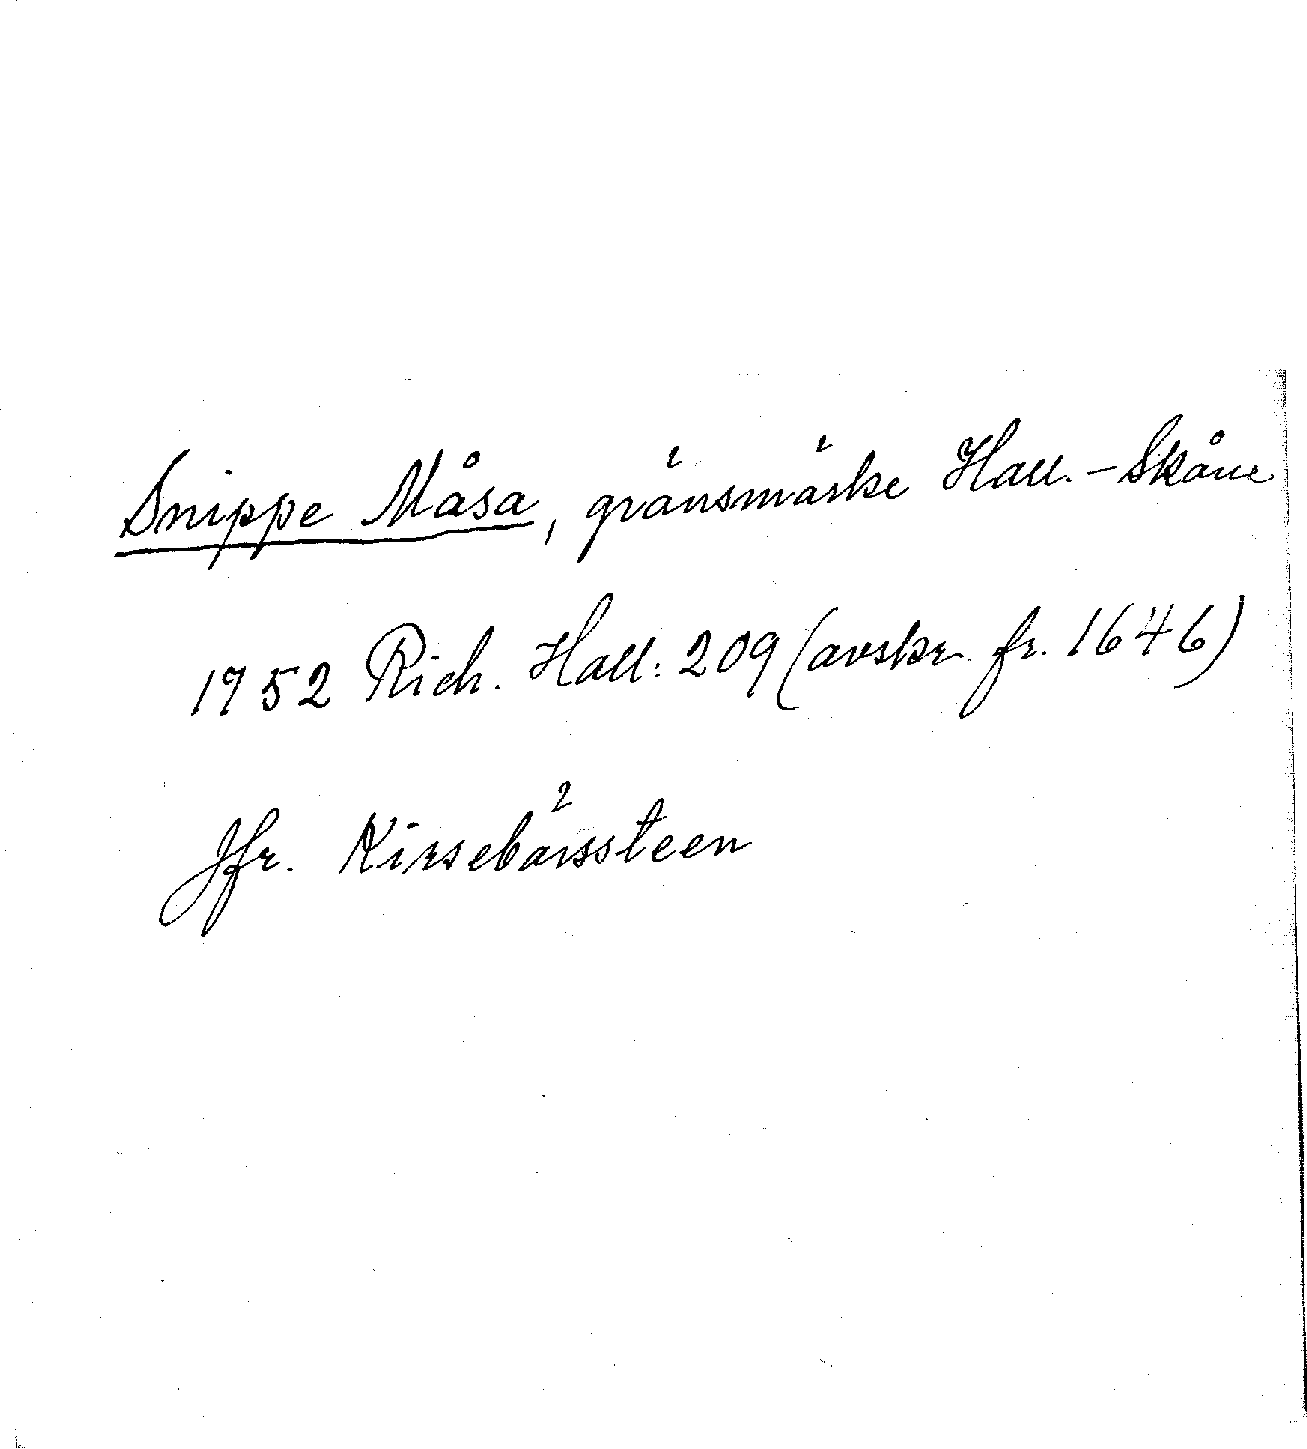 Snippe Måsa, gränsmärke Hall. - Skåne
1752 Rich. Hall: 209 (avskr. fr. 1646)
Jfr. Kirsebärssteen